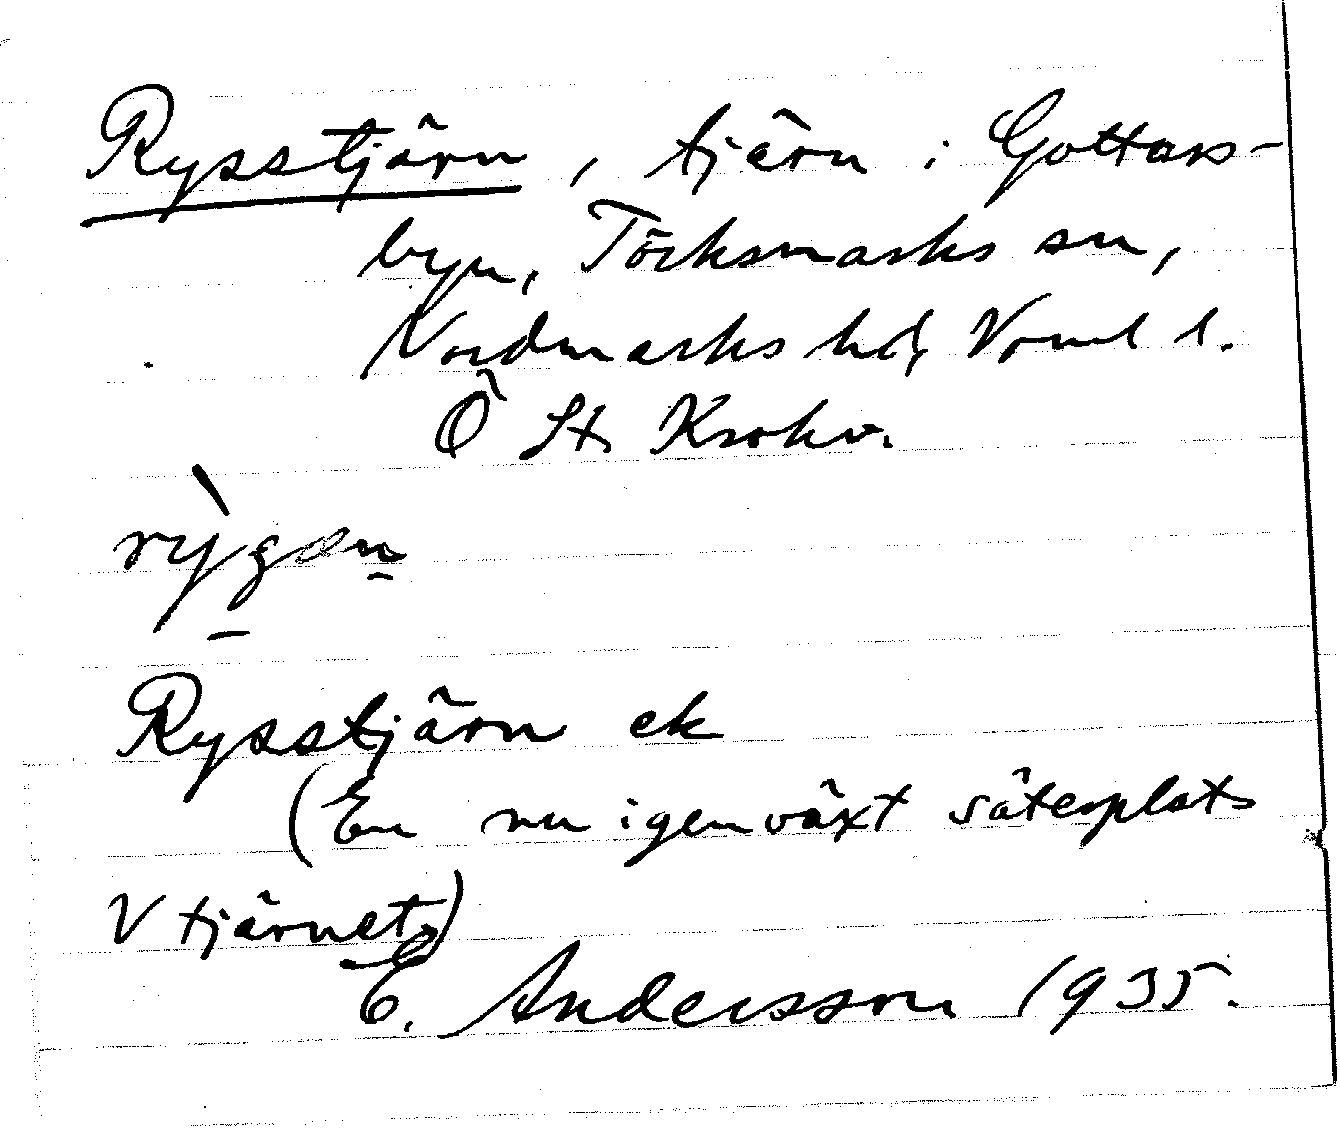 Rysstjärn, tjärn i Gottars-
byn, Töcksmarks sn,
Nordmarks hd, Värml l.
Ö St Krokv.
rỳgən
Rysstjärn ek
(En nu igenväxt säterplats
V tjärnet)
E. Andersson 1935.